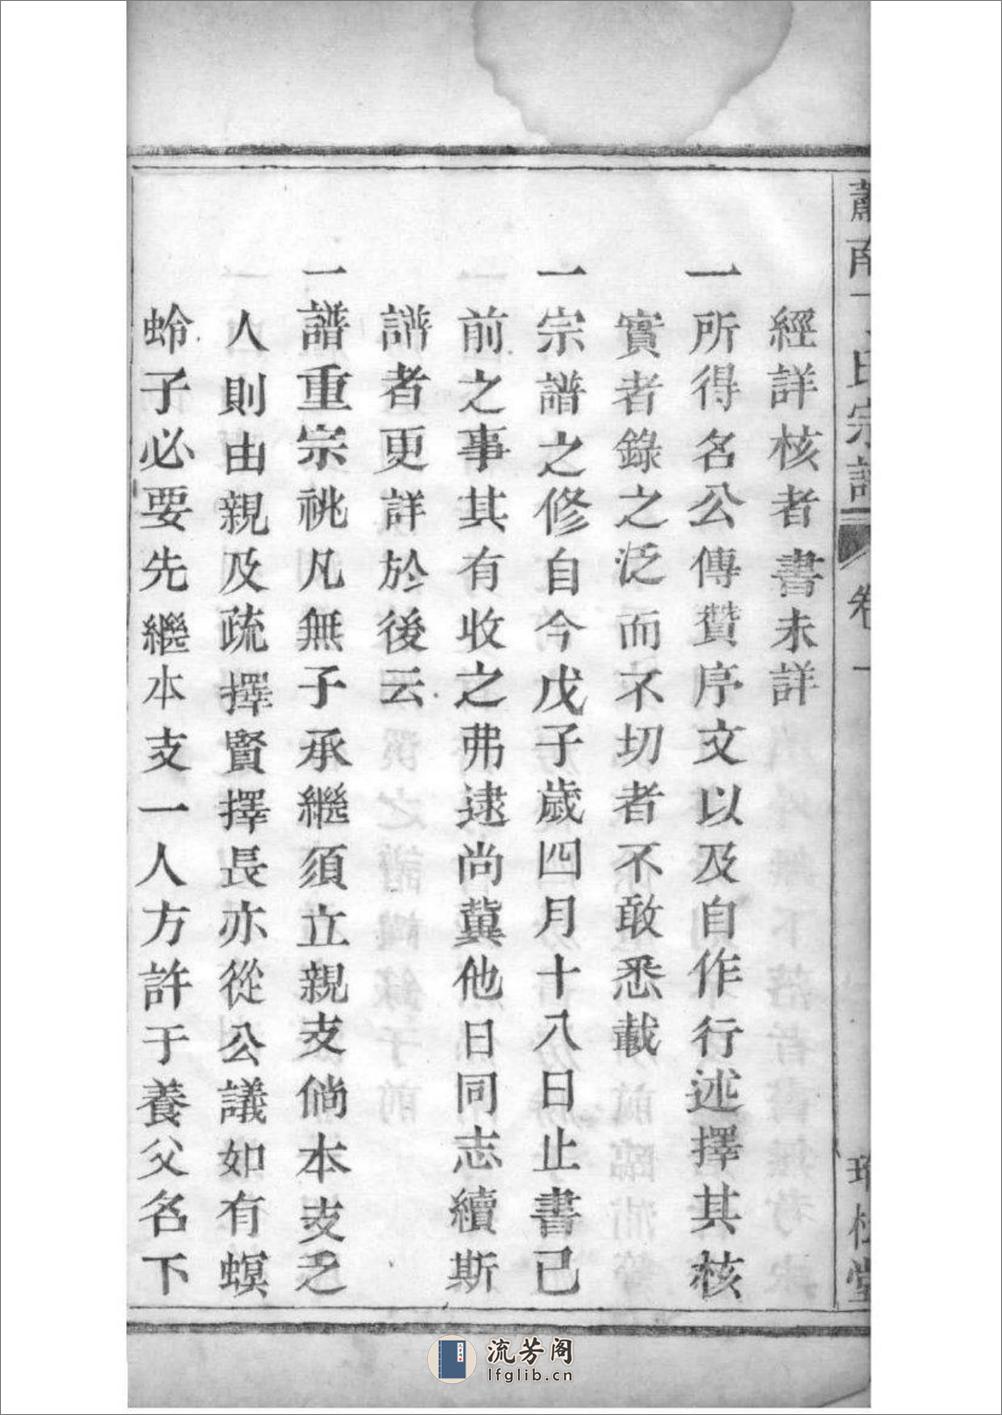 經詳核者書未詳
一所得名公傳贊序文以及自作行述擇其核
實者錄之泛而不切者不敢悉載
一宗譜之修自今戊子歲四月十八日止書已
前之事其有收之弗逮尚冀他日同志續斯
譜者更詳於後云
一譜重宗祧凡無子承繼須立親支倘本支乏
人則由親及疏擇賢擇長亦從公議如有螟
蛉子必要先繼本支一人方許于養父名下
氏宗譜 卷一
流芳阁
lfglib.cn